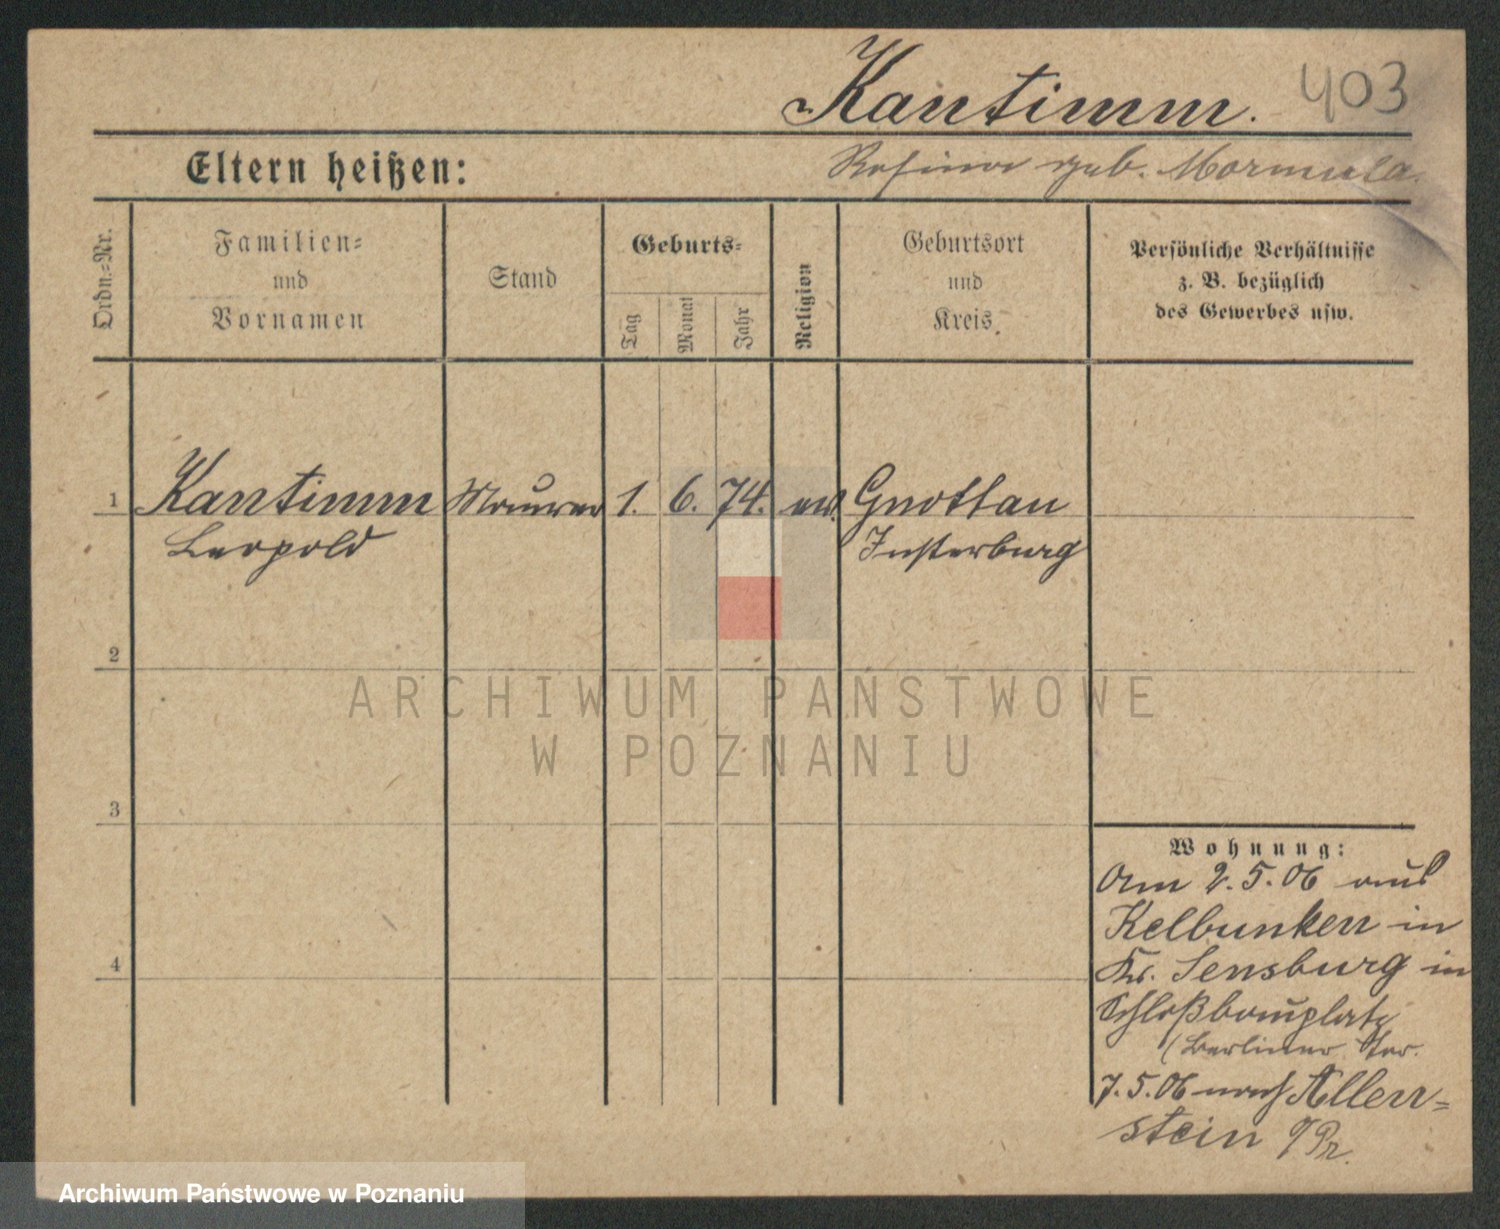 Kantimm. 403
Eltern heißen: Rosine geb. Mormula.
Ordn.=Nr.
Familien=
und
Vornamen
Stand
Geburts=
Tag
Monat
Jahr
Religion
Geburtsort
und
Kreis.
Persönliche Verhältnisse
z. B. bezüglich
des Gewerbes usw.
1 Kantimm Maurer 1. 6. 74. ev. Gnottau
Leopold Insterburg
2
3
4
Wohnung:
Am 2.5.06 aus
Kelbunken in
Kr. Sensburg in
Schloßbauplatz
(Berliner Tor.
7.5.06 nach Allen=
stein O/Pr.
ARCHIWUM PAŃSTWOWE
W POZNANIU
Archiwum Państwowe w Poznaniu